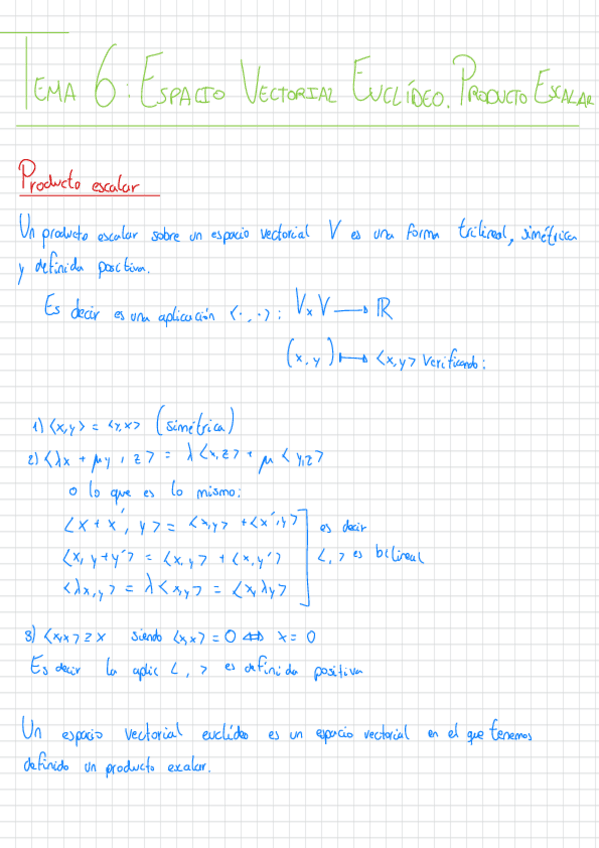 TEMA 6: ESPACIO VECTORIAL EUCLÍDEO. PRODUCTO ESCALAR
Producto escalar
Un producto escalar sobre un espacio vectorial V es una forma trilineal, simétrica
y definida positiva.
Es decir es una aplicación <·,·>: V×V → ℝ
(x,y) ↦ <x,y> verificando:
1) <x,y> = <y,x> (simétrica)
2) <λx + μy, z> = λ<x,z> + μ<y,z>
o lo que es lo mismo:
<x+x', y> = <x,y> + <x',y>
es decir
<x, y+y'> = <x,y> + <x,y'>
<,> es bilineal
<λx,y> = λ<x,y> = <x,λy>
3) <x,x> ≥ x siendo <x,x> = 0 ⇔ x = 0
Es decir la aplic <,> es definida positiva
Un espacio vectorial euclídeo es un espacio vectorial en el que tenemos
definido un producto exalar.